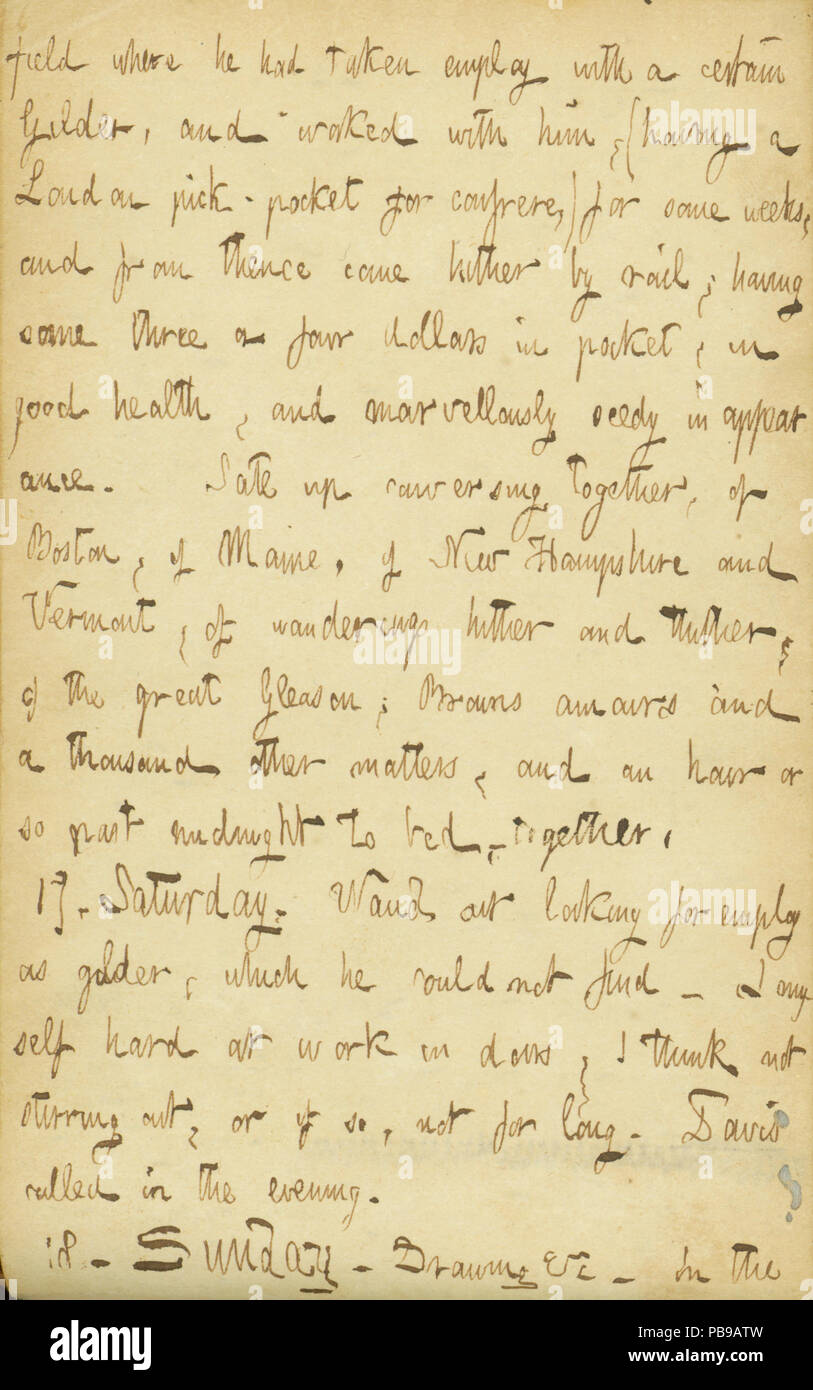 field where he had taken employ with a certain
Gilder, and worked with him, (having a
London pick-pocket for confrere,) for some weeks,
and from thence came hither by rail, having
some three or four dollars in pocket, in
good health, and marvellously seedy in appear
ance. Sate up conversing together, of
Boston, of Maine, of New Hampshire and
Vermont, of wanderings hither and thither,
of the great Gleason, Browns amours and
a thousand other matters, and an hour or
so past midnight to bed, together.
17. Saturday. Waud out looking for employ
as gilder, which he could not find _ I my
self hard at work in doors, I think not
stirring out, or if so, not for long. Davis
called in the evening.
18 _ Sunday _ Drawing &c _ In the
alamy
alamy stock photo
PB9ATW
www.alamy.com